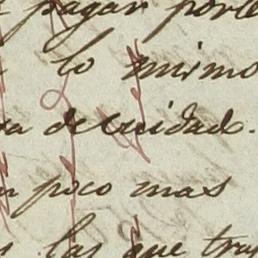 pagar porte
lo mismo
de cuidado.
poco mas
las que tras